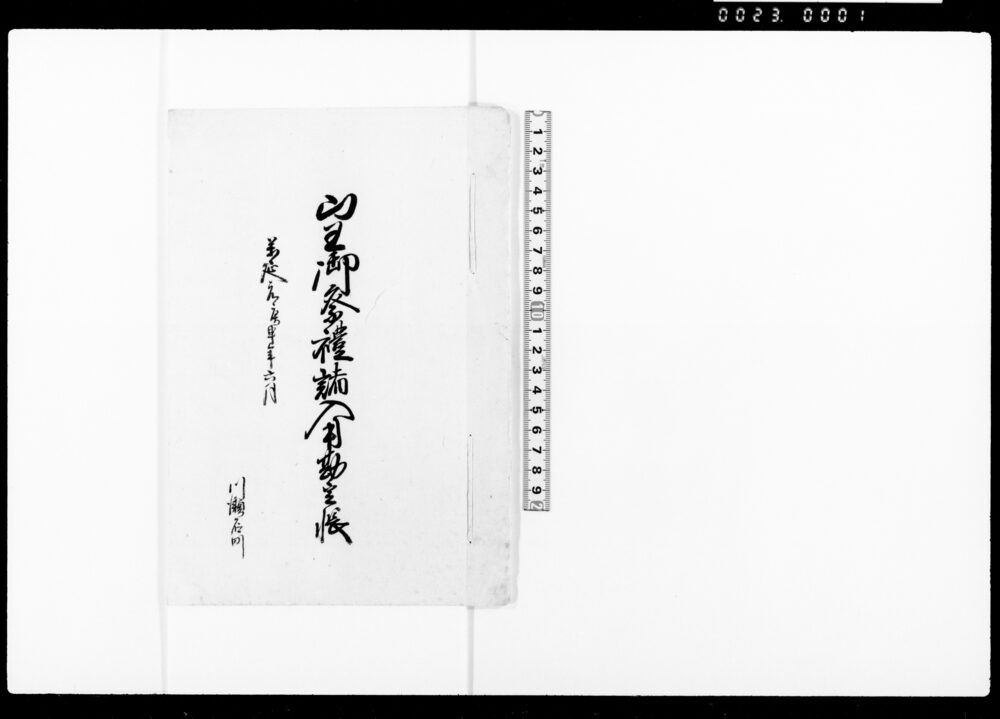 0023.0001
山王御祭禮諸入用勘定帳
萬延元庚申年六月
川瀬石町
1 2 3 4 5 6 7 8 9 10 1 2 3 4 5 6 7 8 9 2